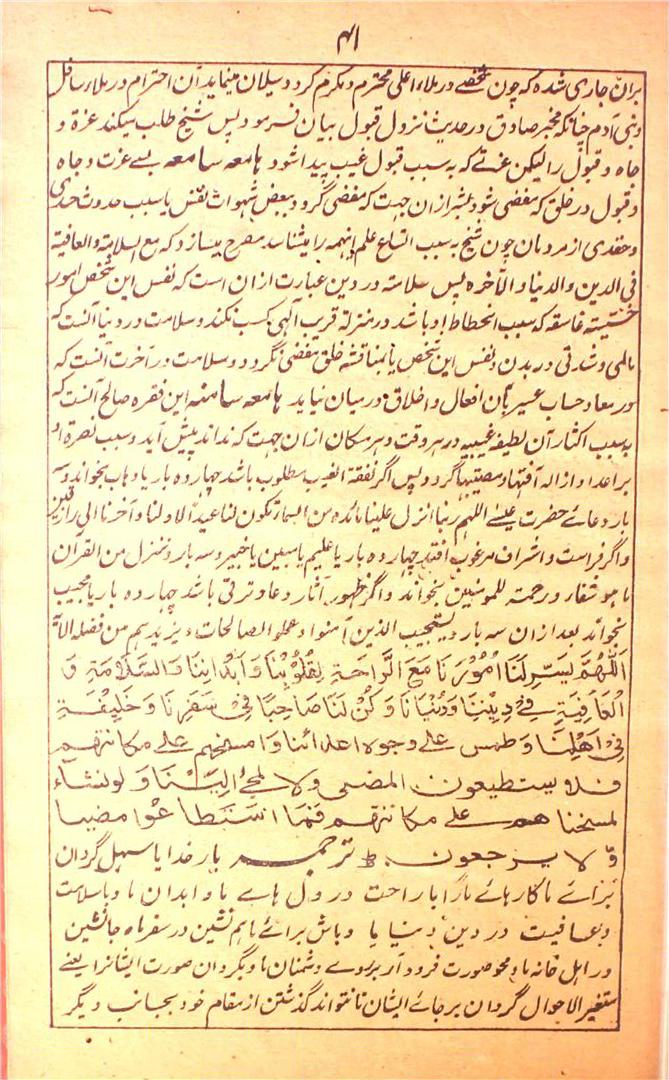 ۴۱
بران جاری شده که چون شخصے در ملاء اعلی محترم و مکرم گردد سیلان مینماید آن احترام در ملاء سافل
و بنی آدم چنانکه مخبر صادق در حدیث نزول قبول بیان فرمود پس شیخ طلب میکند عزة و
جاه و قبول را لیکن عزتے که به سبب قبول غیب پیدا شود هامعه سامعه یعنے عزت و جاه
و قبول در خلق که مفضی شود بشر ازان جهت که مفضی گردد ببعض شهوات نفس یا سبب حدوث حسدی
و حقدی از مردمان چون شیخ به سبب اتساع علم اینهمه را میشناسد مصرح میسازد که مع السلامة والعافیة
فی الدین والدنیا والآخره پس سلامة در دین عبارت ازان است که نفس این شخص امور
خسیسه فاسقه که سبب انحطاط او باشد در منزله قریب آلهی کسب نکند و سلامت در دنیا آنست که
بالمی و شدتی در بدن و نفس این شخص یا بمناقشه خلق مفضی نگردد و سلامت در آخرت آنست که
در معاد حساب عسیر بآن افعال و اخلاق در میان نیاید هامعه سامعه این فقره صالح آنست که
به سبب اکثار آن لطیفه غیبیه در هر وقت و هر مکان ازان جهت که نداند پیش آید و سبب نصرة او
بر اعدا و ازاله آفتها و مصیبتها گردد پس اگر نفقة الغیب مطلوب باشد چهارده بار یا وهاب بخواند و سه
بار دعائے حضرت عیسے اللهم ربنا انزل علینا مائده من السماء تکون لنا عیداً لاولنا و آخرنا الی رازقین
و اگر فراست و اشراف مرغوب افتد چهارده بار یا علیم یا مبین یا خبیر و سه بار و ننزل من القرآن
ما هو شفاء و رحمة للمومنین بخواند و اگر ظهور آثار دعا و ترقی باشد چهارده بار یا مجیب
بخواند بعد ازان سه بار و یستجیب الذین آمنوا و عملوا الصالحات و یزیدهم من فضله الآیة
اَللّٰهُمَّ یَسِّرْ لَنَا اُمُوْرَنَا مَعَ الرَّاحَةِ لِقُلُوْبِنَا وَاَبْدَانِنَا وَالسَّلَامَةِ وَ
الْعَافِیَةِ فِیْ دِیْنِنَا وَدُنْیَانَا وَکُنْ لَنَا صَاحِبًا فِیْ سَفَرِنَا وَخَلِیْفَةً
فِیْ اَهْلِنَا وَطمس علی وجوه اعدائنا وَامسخهم علی مکانتهم
فلا یستطیعون المضی ولا المجئ الیْنَا وَلو نشاء
لمسخناهم علی مکانتهم فَمَا اسْتَطَاعُوا مضیا
وَّلا یرجعون ط ترجمه بار خدایا سهل گردان
برائے ما کارهائے مارا با راحت در دل هاے ما و ابدان ما و با سلامت
و بعافیت در دین و دنیا ما و باش برائے ما هم نشین در سفر ماه جانشین
در اهل خانه ما و محو صورت فرود آر بر روے دشمنان ما و بگردان صورت ایشانرا یعنے
متغیر الاحوال گردان بر جائے ایشان تا نتواند گذشتن از مقام خود بجانب دیگر